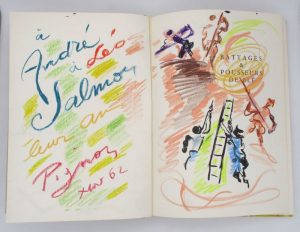 à
André
à Léo
Salmon
leur ami
Pignon
62
BATTAGES
&
POUSSEURS
DE BLÉ